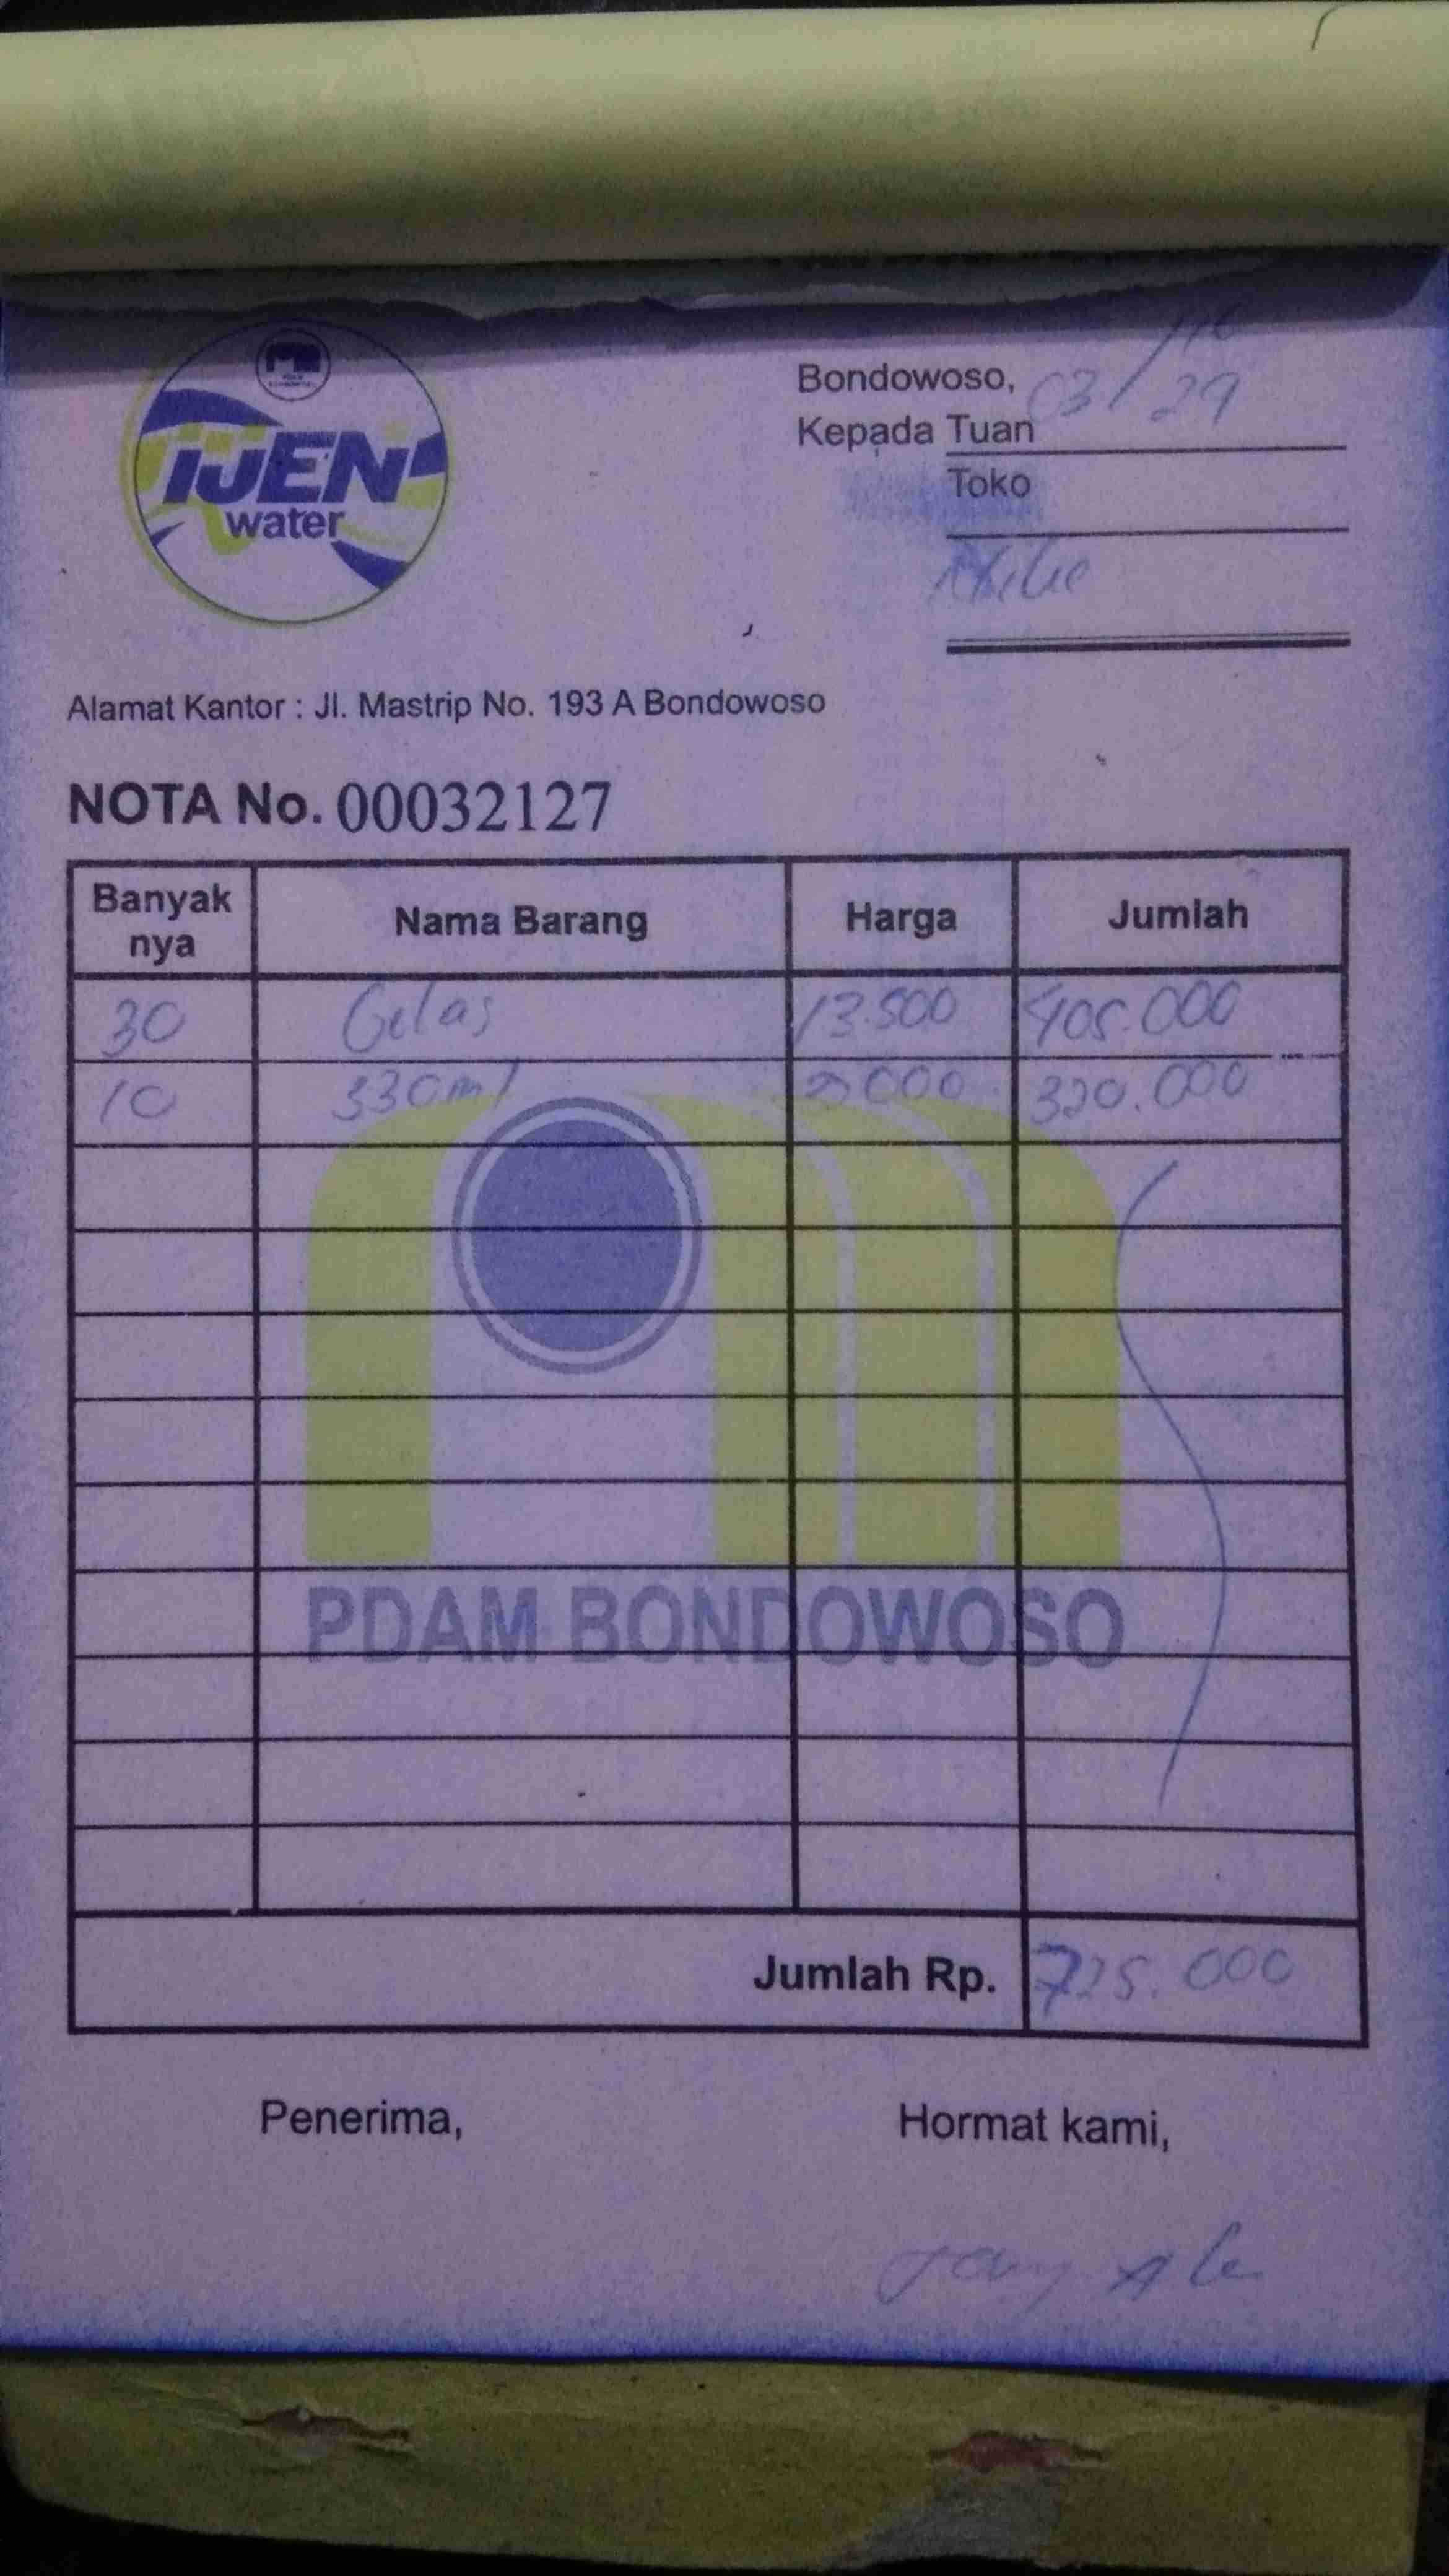 iJEN
water
Bondowoso, 03/
Kepada Tuan
Toko
Alamat Kantor : Jl. Mastrip No. 193 A Bondowoso
NOTA No. 00032127
Banyak nya Nama Barang Harga Jumlah
30 Gelas 13.500 405.000
10 330ml 320.000
PDAM BONDOWOSO
Jumlah Rp. 725.000
Penerima, Hormat kami,